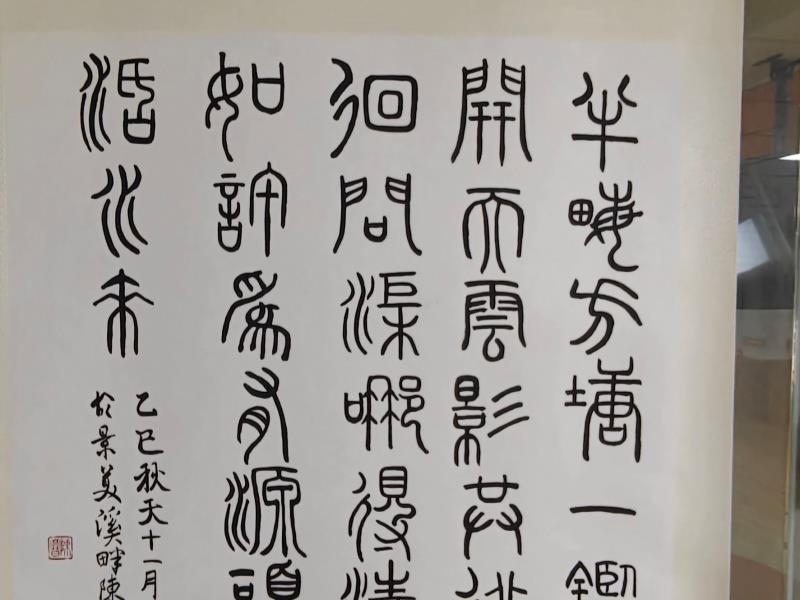 半畝方塘一鑑
開天雲影共徘
徊問渠哪得清
如許為有源頭
活水來
乙巳秋天十一月
於景美溪畔陳